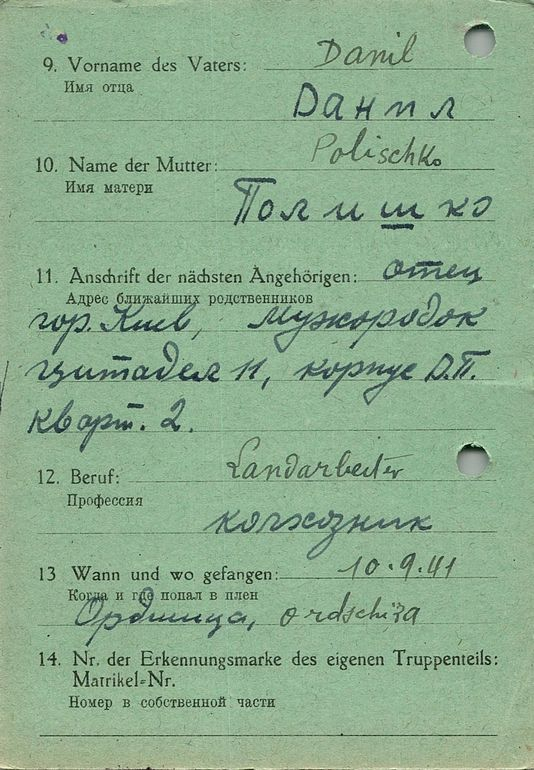 9. Vorname des Vaters: Danil
Имя отца
Данил
10. Name der Mutter: Polischko
Имя матери
Полишко
11. Anschrift der nächsten Angehörigen: отец
Адрес ближайших родственников
гор. Киев,
цитадел 11, корпус Д.П.
кварт. 2.
12. Beruf: Landarbeiter
Профессия
колхозник
13 Wann und wo gefangen: 10.9.41
Когда и где попал в плен
ordschiza
14. Nr. der Erkennungsmarke des eigenen Truppenteils:
Matrikel-Nr.
Номер в собственной части